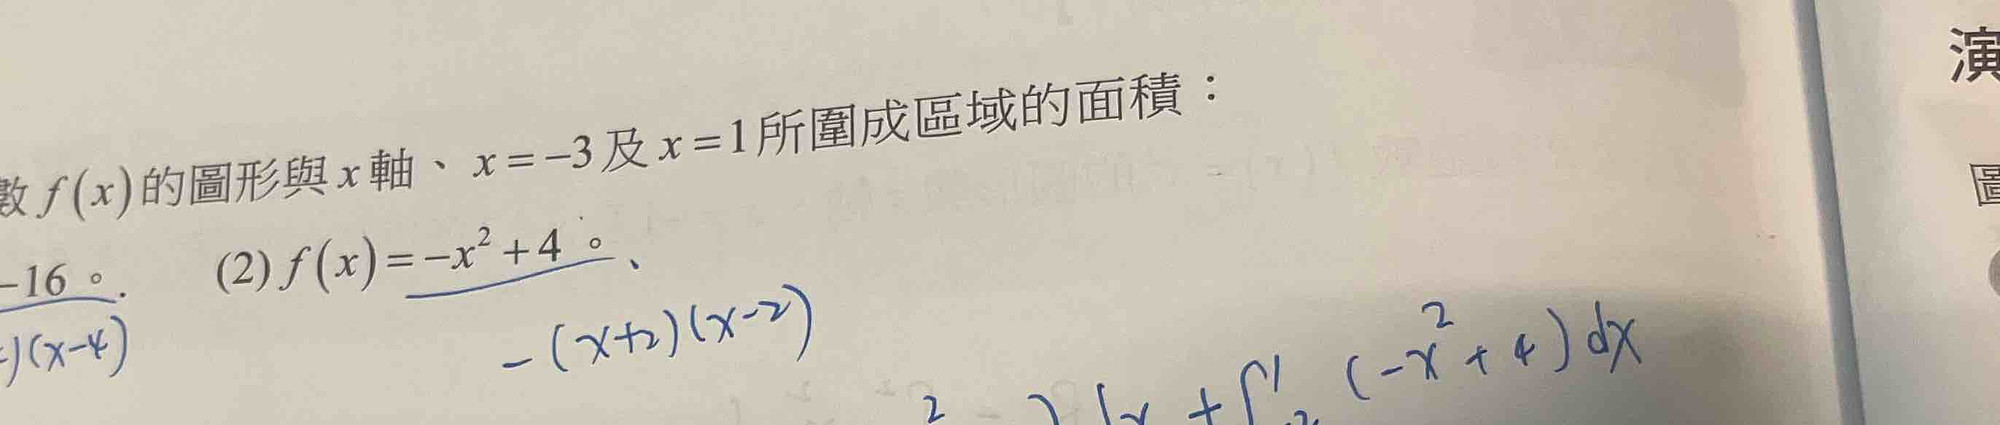 數 f(x) 的圖形與 x 軸、x = −3 及 x = 1 所圍成區域的面積：
−16。 (2) f(x) = −x² + 4。
)(x−4) −(x+2)(x−2)
+ ∫ (−x² + 4) dx
演
圖